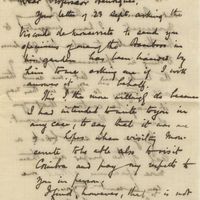 Dear Professor Henriques,
Your letter of 23 Sept. asking the
Visconde de Monserrate to send you
specimens of many the Bamboos in
his garden has been handed by
him to me, asking me if I will
answer it on his behalf.
This I the more willingly do because
I had intended to write to you in
any case, to say that it was
my hope when visiting Mon-
serrate to be able also to visit
Coimbra and pay my respects to
you in person,
I find, however, that it is not